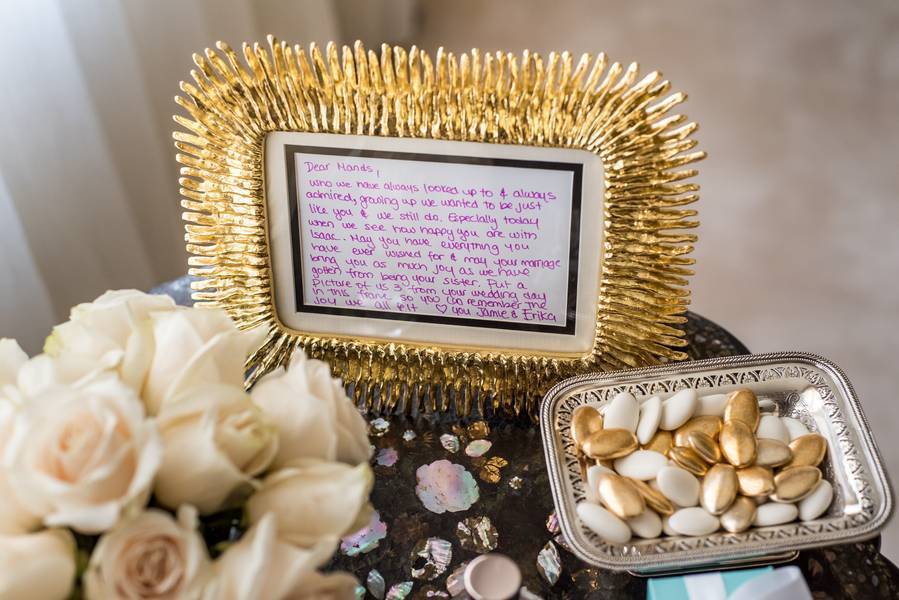 Dear Mands,
who we have always looked up to & always
admired, growing up we wanted to be just
like you & we still do. Especially today
when we see how happy you are with
Isaac. May you have everything you
have ever wished for & may your marriage
bring you as much joy as we have
gotten from being your sister. Put a
picture of us 3 from your wedding day
in this frame so you can remember the
joy we all felt ♡ you Jamie & Erika